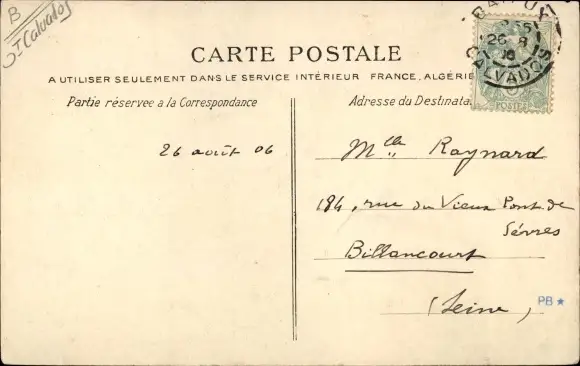 B
J Calvados
CARTE POSTALE
A UTILISER SEULEMENT DANS LE SERVICE INTÉRIEUR FRANCE, ALGÉRIE
Partie réservée a la Correspondance
Adresse du Destinata
26 8
CALVADOS
POSTES
26 août 06
Mlle Raynard
184, rue du Vieux Pont de
Sévres
Billancourt
(Seine)
PB ★